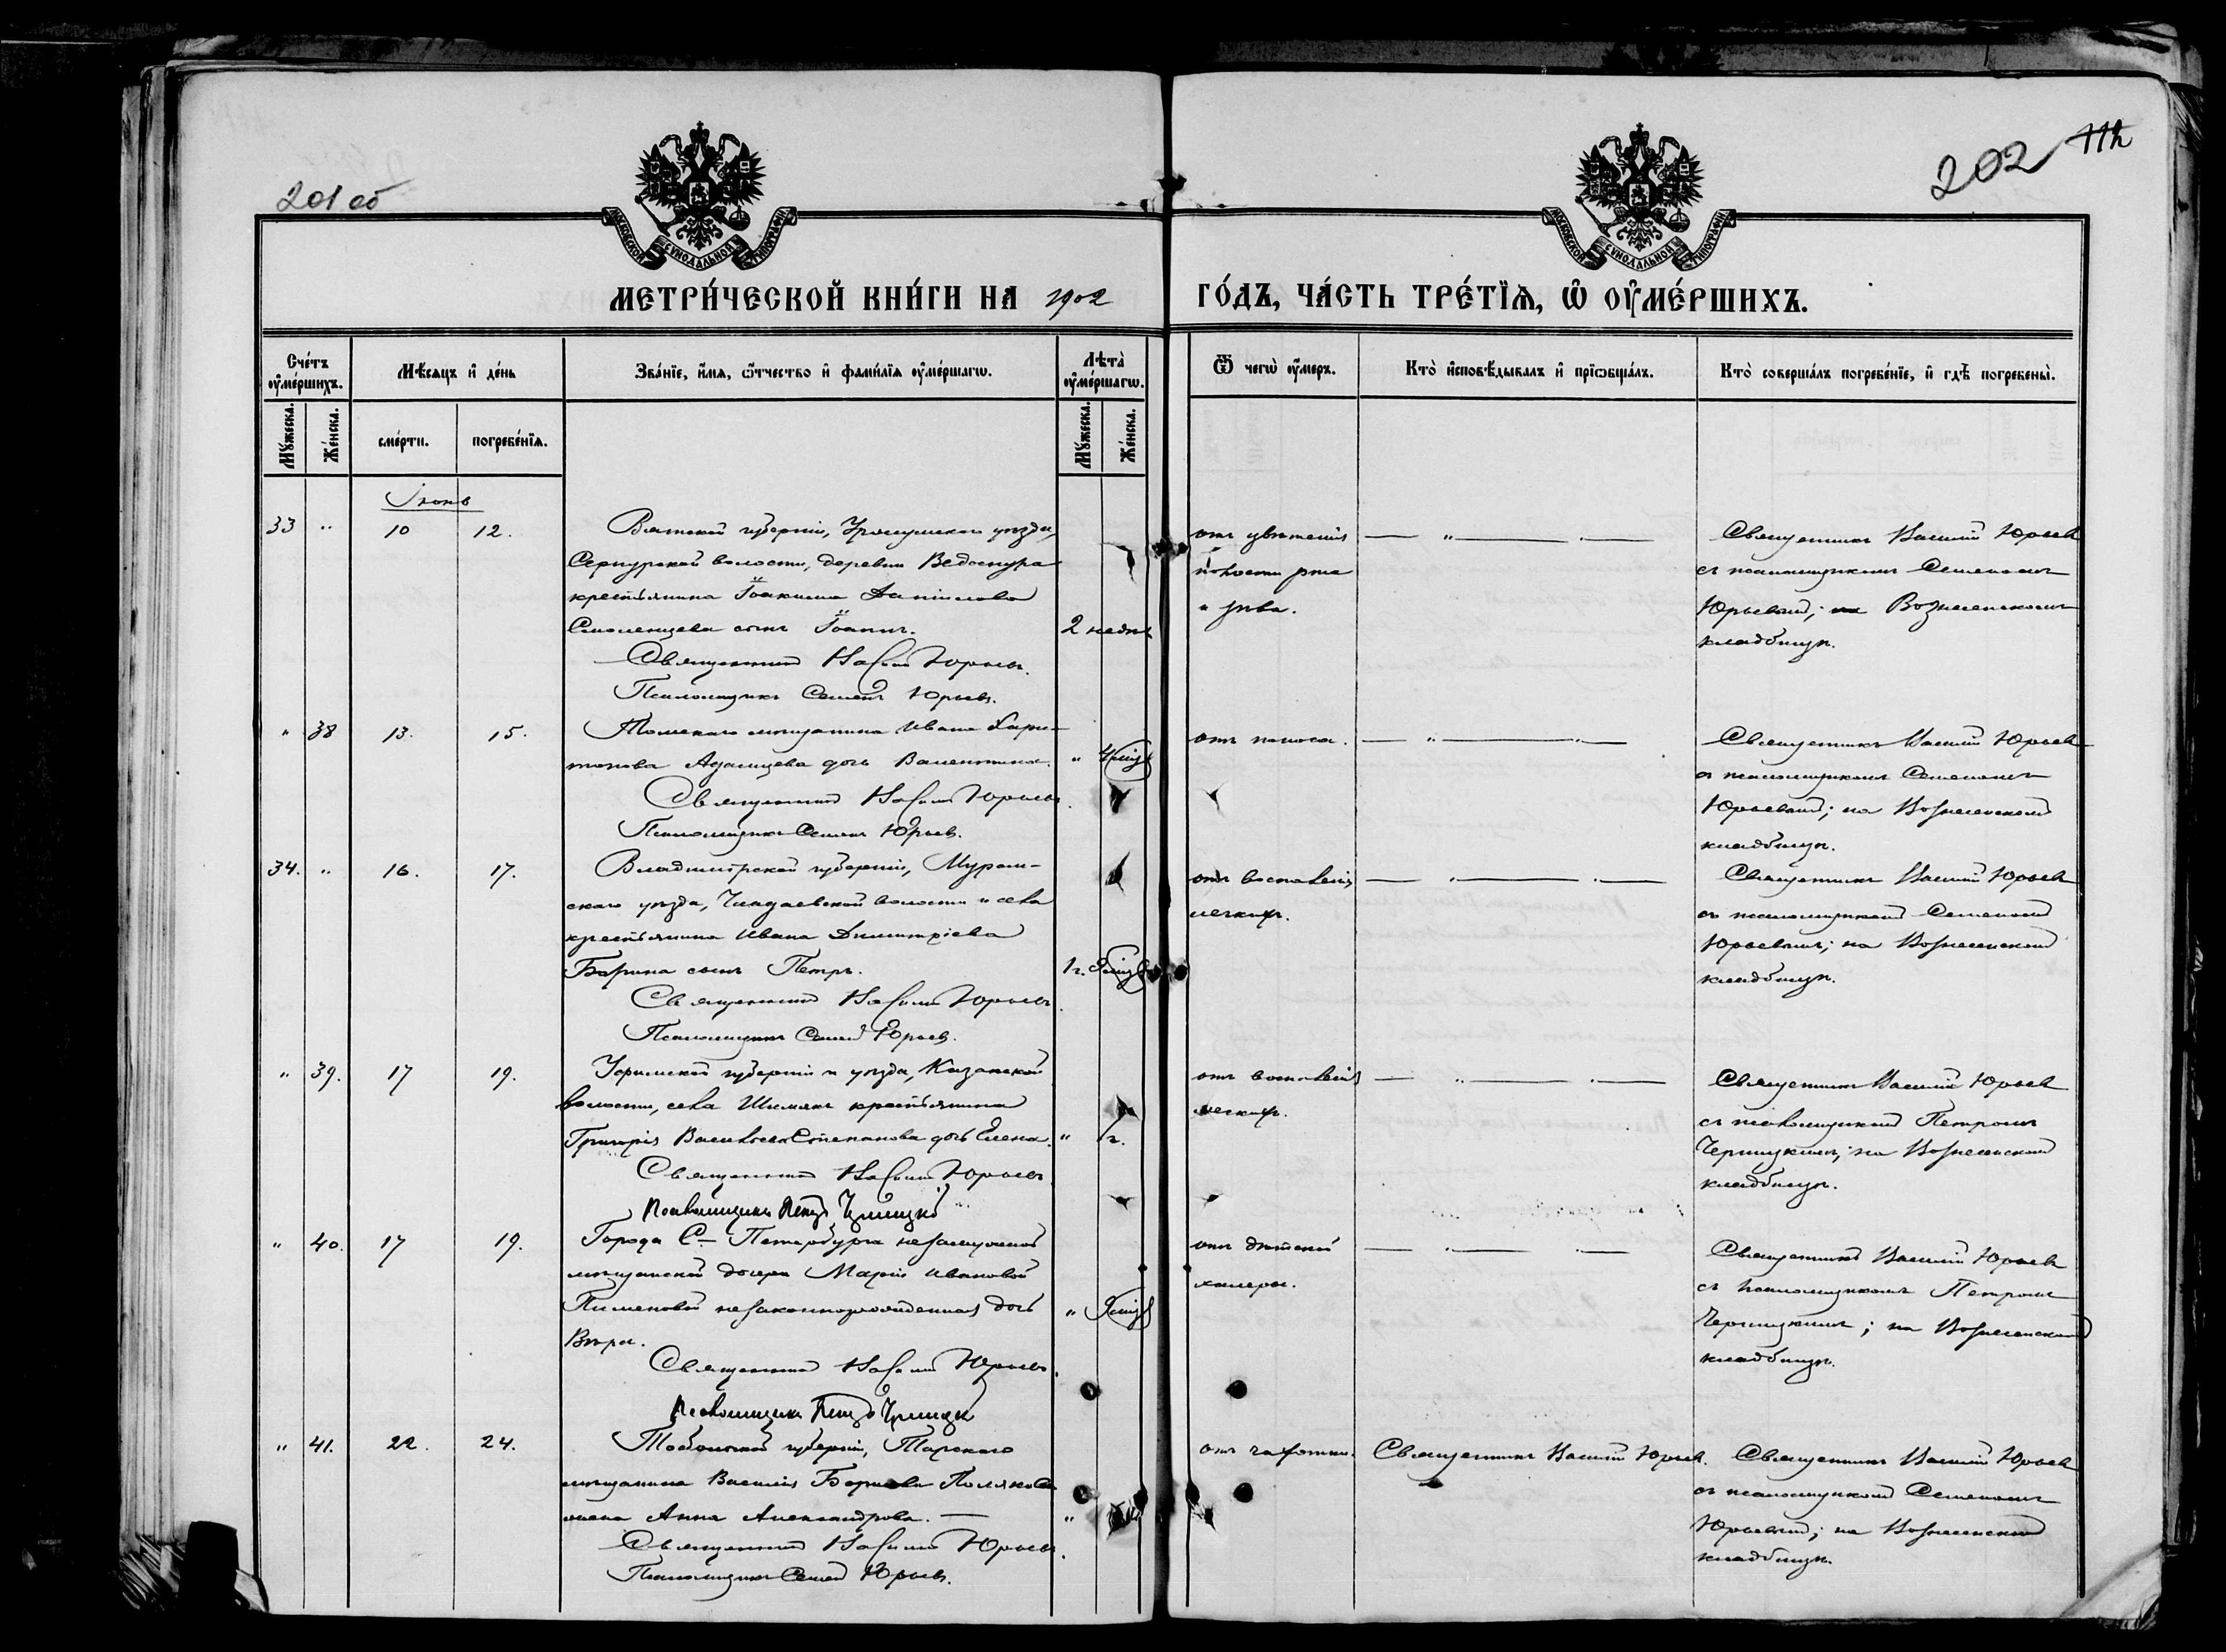 201 об
202
112
МОСКОВСКОЙ СУНОДАЛЬНОЙ ТИПОГРАФІИ
МОСКОВСКОЙ СУНОДАЛЬНОЙ ТИПОГРАФІИ
МЕТРИ́ЧЕСКОЙ КНИ́ГИ НА 1902 ГО́ДЪ, ЧА́СТЬ ТРЕ́ТІѦ, Ѡ ОУ҆МЕ́РШИХЪ.
Сче́тъ оу҆ме́ршихъ.
Мѣ́сѧцъ и҆ де́нь
Зва́нїе, и҆́мѧ, ѻ҆́тчество и҆ фами́лїѧ оу҆ме́ршагѡ.
Лѣта̀ оу҆ме́ршагѡ.
Ѿ чегѡ̀ оу҆́меръ.
Кто̀ и҆сповѣ́дывалъ и҆ прїѡбща́лъ.
Кто̀ соверша́лъ погребе́нїе, и҆ гдѣ̀ погребены̀.
Мꙋ́жеска.
Же́нска.
сме́рти.
погребе́нїѧ.
Мꙋ́жеска.
Же́нска.
Іюнь
33 " 10 12.
Вятской губерніи, Уржумскаго уѣзда,
Сернурской волости, деревни
крестьянина Іоакима Даніилова
Смоленцева сынъ Іоаннъ.
2 недѣли
Священникъ Василій Юрьевъ.
Псаломщикъ Семенъ Юрьевъ.
отъ цвѣтенія
полости рта
и зѣва.
Священникъ Василій Юрьевъ
съ псаломщикомъ Семеномъ
Юрьевымъ; на Вознесенскомъ
кладбищѣ.
" 38 13. 15.
Томскаго мѣщанина Ивана Хари-
тонова дочь Валентина.
"
Священникъ Василій Юрьевъ.
Псаломщикъ Семенъ Юрьев.
отъ поноса.
Священникъ Василій Юрьевъ
съ псаломщикомъ Семеномъ
Юрьевымъ; на Вознесенскомъ
кладбищѣ.
34. " 16. 17.
Владимірской губерніи, Муром-
скаго уѣзда, волости и села
крестьянина Ивана Димитріева
сынъ Петръ.
1 г.
Священникъ Василій Юрьевъ
Псаломщикъ Семенъ Юрьевъ.
отъ воспаленія
легкихъ.
Священникъ Василій Юрьевъ
съ псаломщикомъ Семеномъ
Юрьевымъ; на Вознесенскомъ
кладбищѣ.
" 39. 17 19.
Уфимской губерніи и уѣзда, Казанской
волости, села крестьянина
Григорія Васильева Степанова дочь Елена.
" 1г.
Священникъ Василій Юрьевъ
Псаломщикъ Петръ
отъ воспаленія
легкихъ.
Священникъ Василій Юрьевъ
съ псаломщикомъ Петромъ
на Вознесенскомъ
кладбищѣ.
" 40. 17 19.
Города С- Петербурга незамужней
мѣщанской дочери Маріи Ивановой
Пименовой незаконнорожденная дочь
Вѣра.
"
Священникъ Василій Юрьевъ.
Псаломщикъ Петръ
отъ дѣтской
холеры.
Священникъ Василій Юрьевъ
съ псаломщикомъ Петромъ
; на Вознесенскомъ
кладбищѣ.
" 41. 22. 24.
Тобольской губерніи, Тарскаго
мѣщанина Василія Полякова
жена Анна Александрова. —
"
Священникъ Василій Юрьевъ.
Псаломщикъ Семенъ Юрьевъ.
отъ чахотки.
Священникъ Василій Юрьевъ.
Священникъ Василій Юрьевъ
съ псаломщикомъ Семеномъ
Юрьевымъ; на Вознесенскомъ
кладбищѣ.